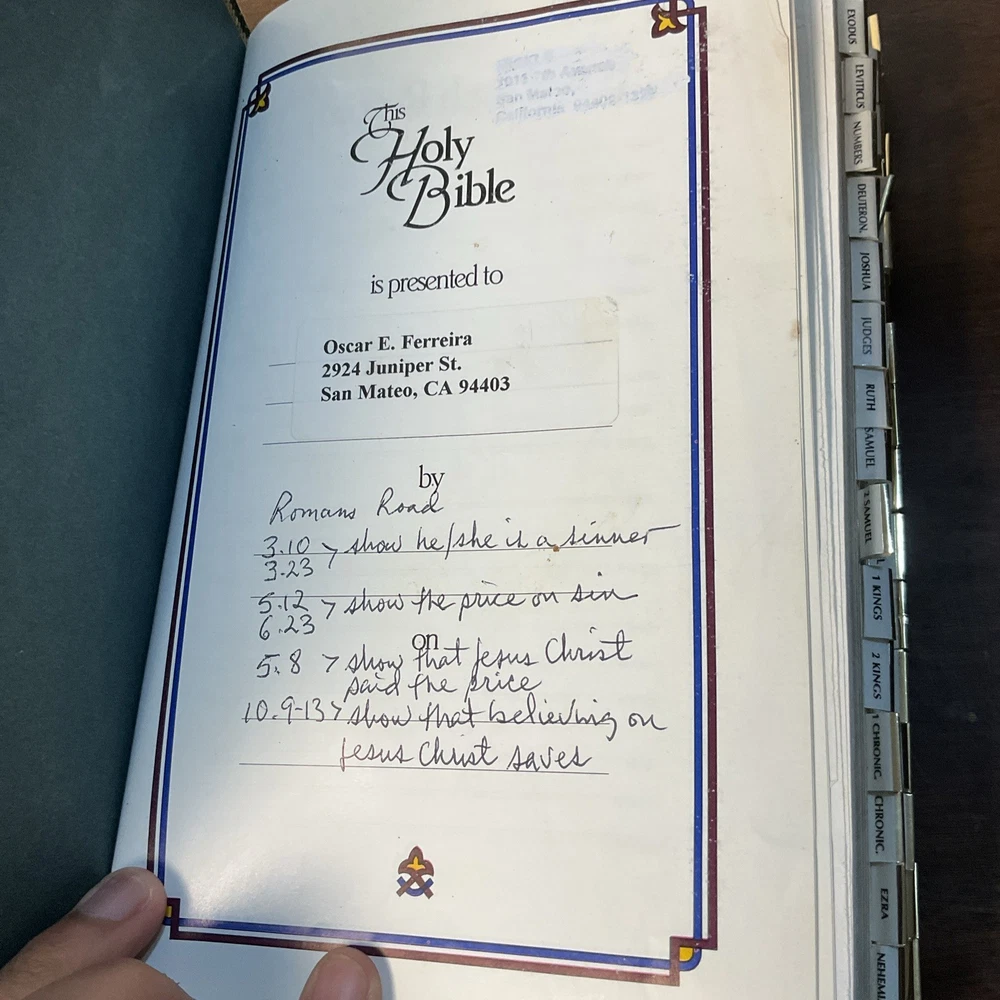 San Mateo,
California
This
Holy
Bible
is presented to
Oscar E. Ferreira
2924 Juniper St.
San Mateo, CA 94403
by
Romans Road
3.10 > show he/she is a sinner
3.23
5.12 > show the price on sin
6.23
on
5.8 > show that Jesus Christ
paid the price
10.9-13 > show that believing on
Jesus Christ saves
EXODUS
LEVITICUS
NUMBERS
DEUTERON.
JOSHUA
JUDGES
RUTH
SAMUEL
2 SAMUEL
1 KINGS
2 KINGS
1 CHRONIC.
CHRONIC.
EZRA
NEHEMI